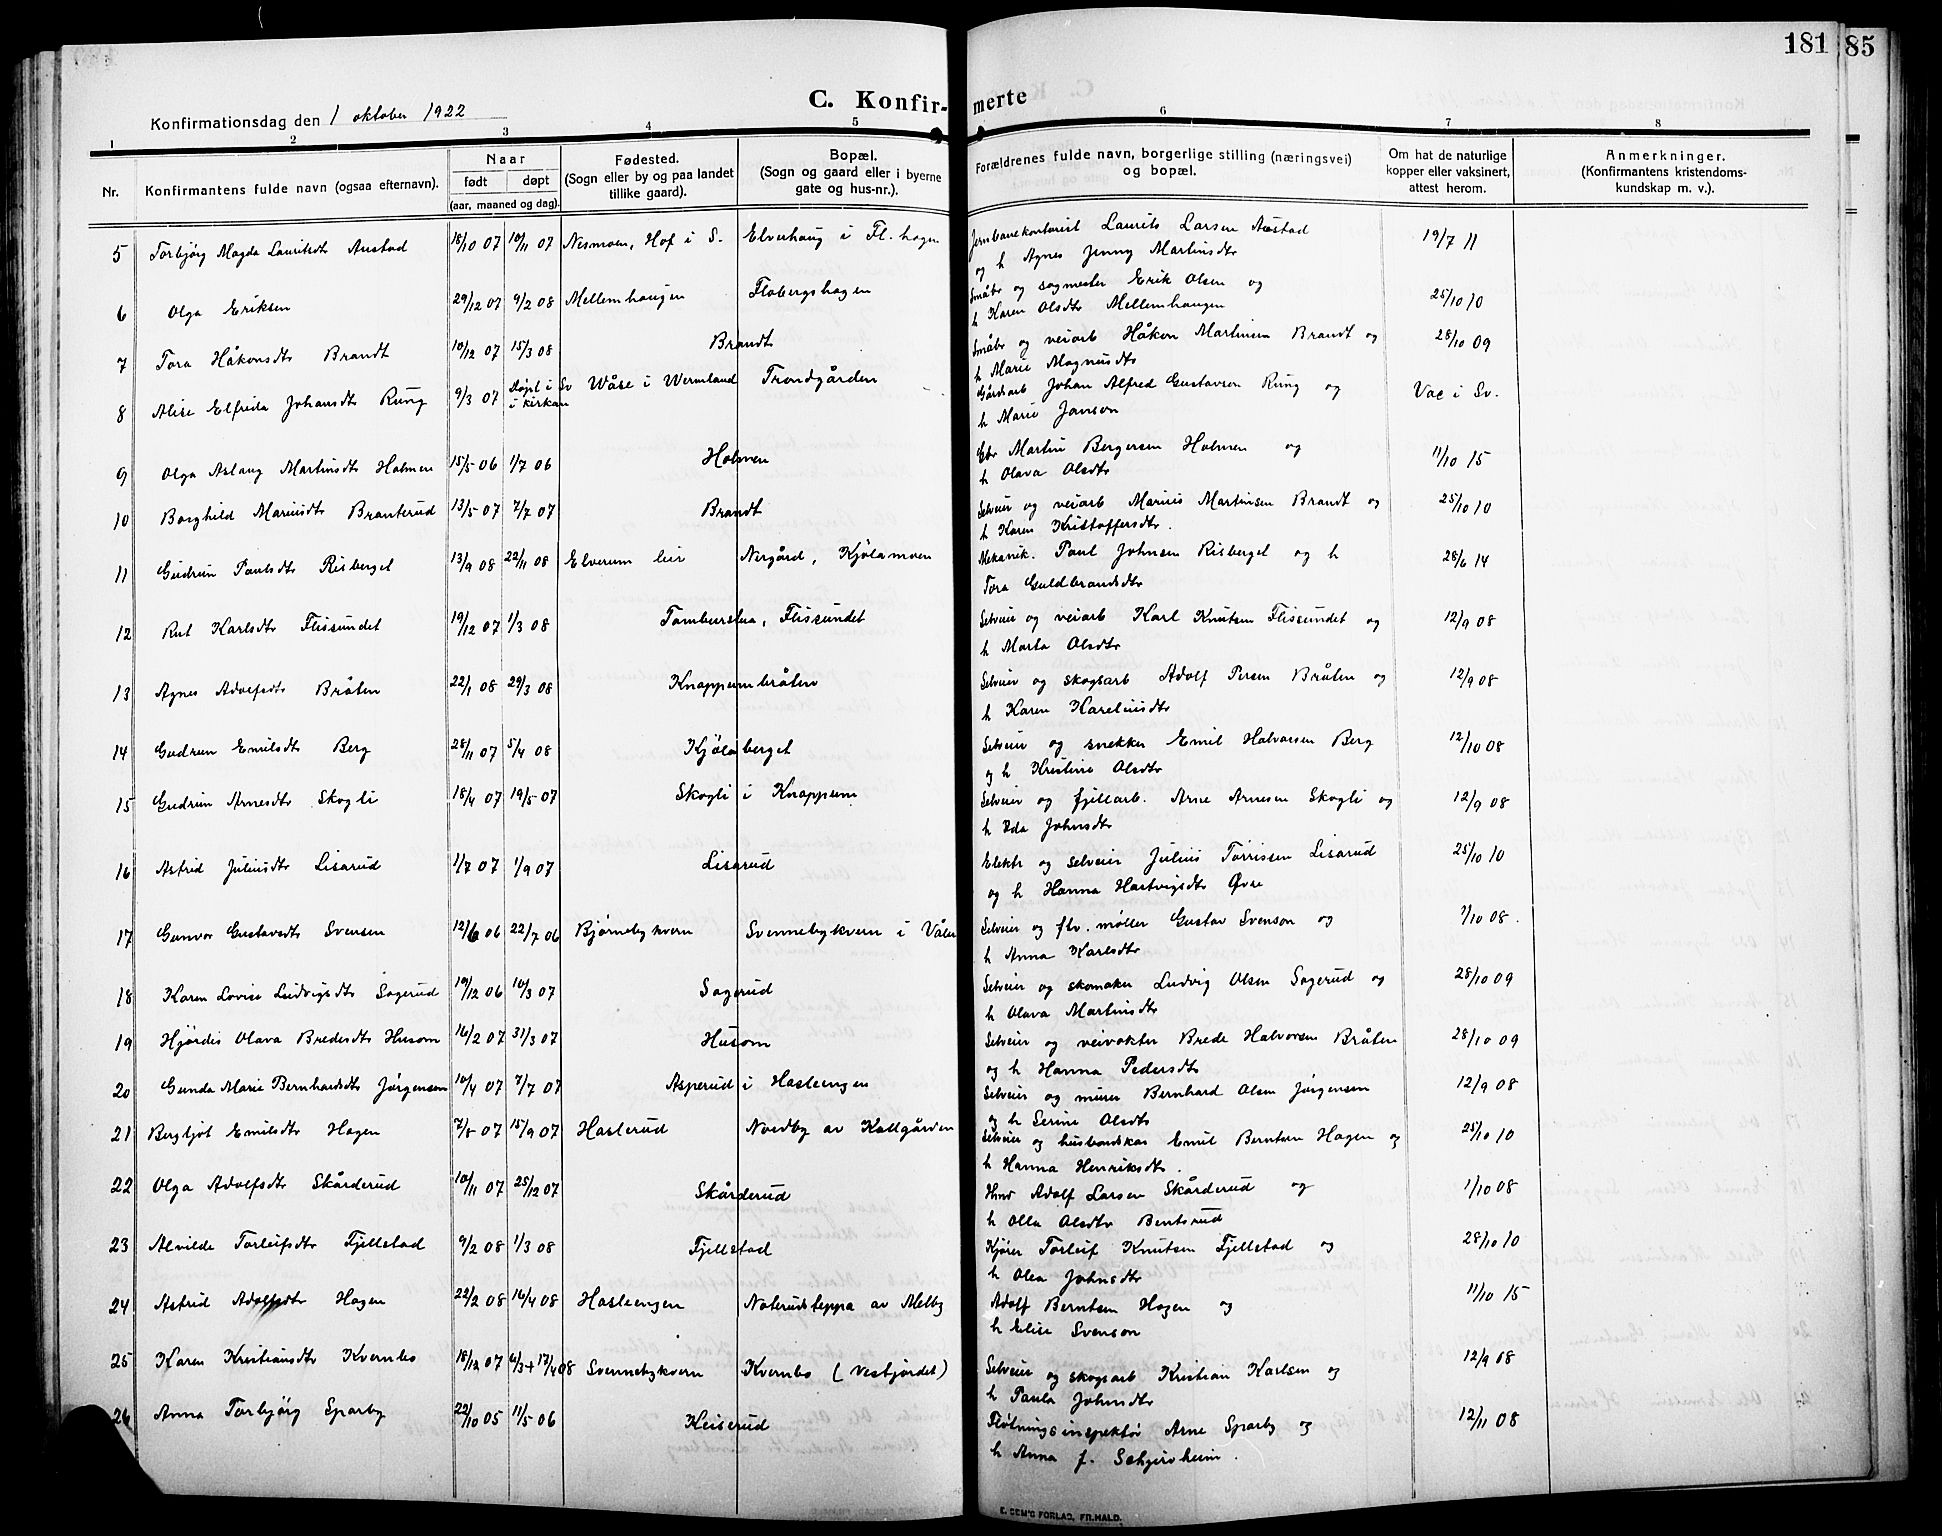 181
85
C. Konfir-
merte
Konfirmationsdag den 1 oktober 1922
1 2 3 4 5 6 7 8
Nr.
Konfirmantens fulde navn (ogsaa efternavn).
Naar
født døpt
(aar, maaned og dag).
Fødested.
(Sogn eller by og paa landet
tillike gaard).
Bopæl.
(Sogn og gaard eller i byerne
gate og hus-nr.).
Forældrenes fulde navn, borgerlige stilling (næringsvei)
og bopæl.
Om hat de naturlige
kopper eller vaksinert,
attest herom.
Anmerkninger.
(Konfirmantens kristendoms-
kundskap m. v.).
5 Torbjørg Magda Lauritsdtr Austad 18/10 07 19/11 07 Nesmoen, Hof i S. Elverhaug i Fl. hagen Jernbanekontorist Laurits Larsen Austad 19/7 11
og h Agnes Jenny Martinsdtr
6 Olga Eriksen 29/12 07 9/2 08 Mellemhaugen Flobergshagen Småbr og sagmester Erik Olsen og 25/10 10
h Karen Olsdtr Mellemhaugen
7 Tora Håkonsdtr Brandt 10/12 07 15/3 08 Brandt Småbr og veiarb Håkon Martinsen Brandt og 28/10 09
h Marie Magnusdtr
8 Alise Elfrida Johansdtr Rung 9/3 07 døpt i Sv i kirkan Wåse i Wermland Trondgården Gårdsarb Johan Alfred Gustavson Rung og Vac i Sv.
h Marie Janson
9 Olga Aslaug Martinsdtr Holmen 15/5 06 1/7 06 Holmen Gbr Martin Bergersen Holmen og 11/10 15
h Olava Olsdtr
10 Borghild Mariusdtr Branterud 13/5 07 7/7 07 Brandt Selveier og veiarb Marius Martinsen Brandt og 25/10 10
h Karen Kristoffersdtr.
11 Gudrun Paulsdtr Risberget 13/9 08 22/11 08 Elverum leir Nergård, Kjølamoen Mekanik. Paul Johnsen Risberget og h 28/6 14
Tora Guldbrandsdtr
12 Rut Karlsdtr Flissundet 19/12 07 1/3 08 Tamburstua, Flissundet Selveier og veiarb Karl Knutsen Flissundet og 12/9 08
h Marta Olsdtr
13 Agnes Adolfsdtr Bråten 22/1 08 29/3 08 Knappumbråten Selveier og skogsarb Adolf Persen Bråten og 12/9 08
h Karen Kareliusdtr
14 Gudrun Emilsdtr Berg 28/11 07 5/4 08 Kjølaberget Selveier og snekker Emil Halvorsen Berg 12/10 08
og h Kristine Olsdtr
15 Gudrun Arnesdtr Skogli 18/4 07 19/5 07 Skogli i Knappum Selveier og fjellarb. Arne Arnesen Skogli og 12/9 08
h Ida Johnsdtr
16 Astrid Juliusdtr Lisarud 1/7 07 1/9 07 Lisarud Elektr og selveier Julius Torrissen Lisarud 25/10 10
og h Hanna Hartvigsdtr Øvse
17 Gunvor Gustavsdtr Svensen 12/6 06 22/7 06 Bjørnebykvern Svennebykvern i Våler Selveier og fhv. møller Gustav Svenson og 1/10 08.
h Anna Karlsdtr
18 Karen Lovise Ludvigsdtr Sagerud 19/12 06 10/3 07 Sagerud Selveier og skomaker Ludvig Olsen Sagerud og 28/10 09
h Olava Martinsdtr
19 Hjørdis Olava Bredesdtr Husom 16/2 07 31/3 07 Husom Selveier og veivokter Brede Halvorsen Bråten 28/10 09
og h Hanna Pedersdtr
20 Gunda Marie Bernhardsdtr Jørgensen 10/4 07 7/7 07 Asperud i Hasleengen Selveier og murer Bernhard Olsen Jørgensen 12/9 08
og h Serine Olsdtr
21 Bergljot Emilsdtr Hagen 7/8 07 15/9 07 Haslerud Nordby av Kallgården Selveier og husbondskar Emil Berntsen Hagen og 25/10 10
h Hanna Henriksdtr.
22 Olga Adolfsdtr Skårderud 10/11 07 25/12 07 Skårderud Hmd Adolf Larsen Skårderud og 1/10 08
h Olla Olsdtr Bentsrud
23 Alvilde Torleifsdtr Fjellstad 9/2 08 1/3 08 Fjellstad Kjører Torleif Knutsen Fjellstad og 28/10 10
h Olea Johnsdtr
24 Astrid Adolfsdtr Hagen 22/2 08 16/4 08 Hasleengen Noterudsteppa av Melby Adolf Berntsen Hagen og 11/10 15
h Elise Svenson
25 Karen Kristiansdtr Kvernbo 18/12 07 6/3 + 17/4 08 Svennebykvern Kvernbo (Vestfjordet) Selveier og skogsarb Kristian Karlsen og 12/9 08
h Paula Johnsdtr
26 Anna Torbjørg Sparby 22/10 05 11/5 06 Keiserud Fløtningsinspektør Arne Sparby og 12/11 08
h Anna f. Schjervheim.
E. SEM'S FORLAG, FR.HALD.